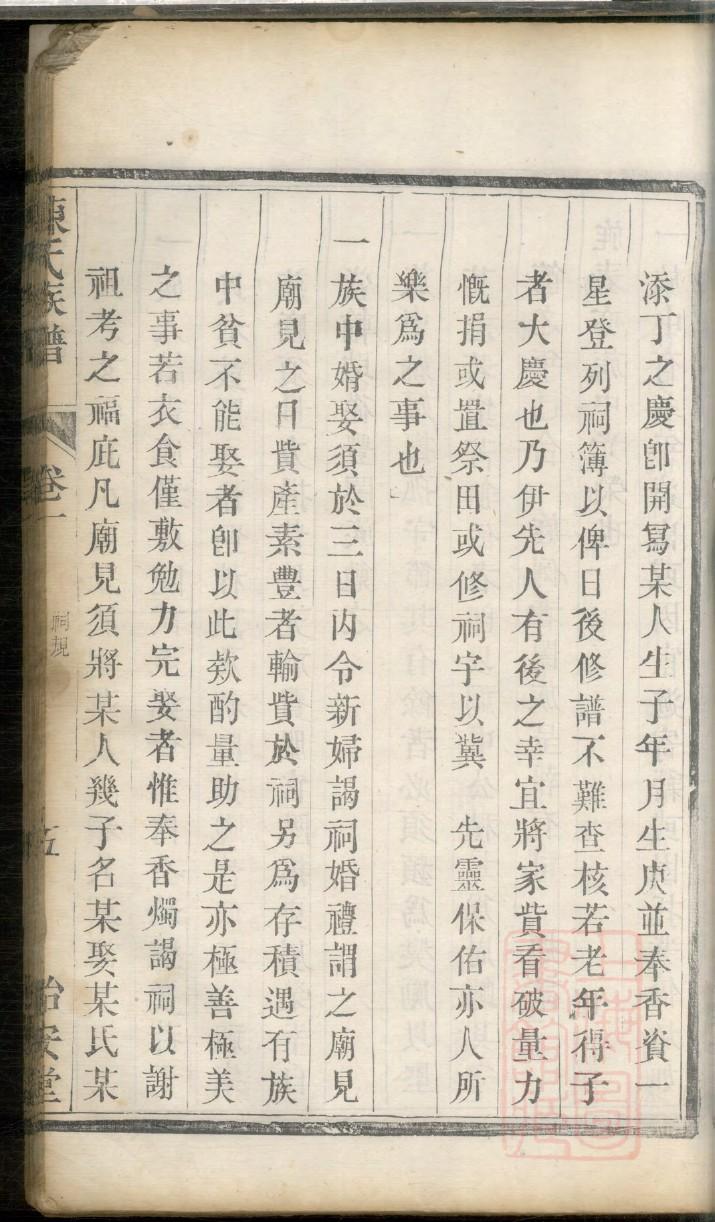 添丁之慶卽開寫某人生子年月生庚並奉香資一
星登列祠簿以俾日後修譜不難查核若老年得子
者大慶也乃伊先人有後之幸宜將家貲看破量力
慨捐或置祭田或修祠宇以冀　先靈保佑亦人所
樂爲之事也
一族中婚娶須於三日內令新婦謁祠婚禮謂之廟見
廟見之日貲產素豐者輸貲於祠另爲存積遇有族
中貧不能娶者卽以此欵酌量助之是亦極善極美
之事若衣食僅敷勉力完娶者惟奉香燭謁祠以謝
祖考之福庇凡廟見須將某人幾子名某娶某氏某
陳氏族譜　卷一　祠規　五　治安堂